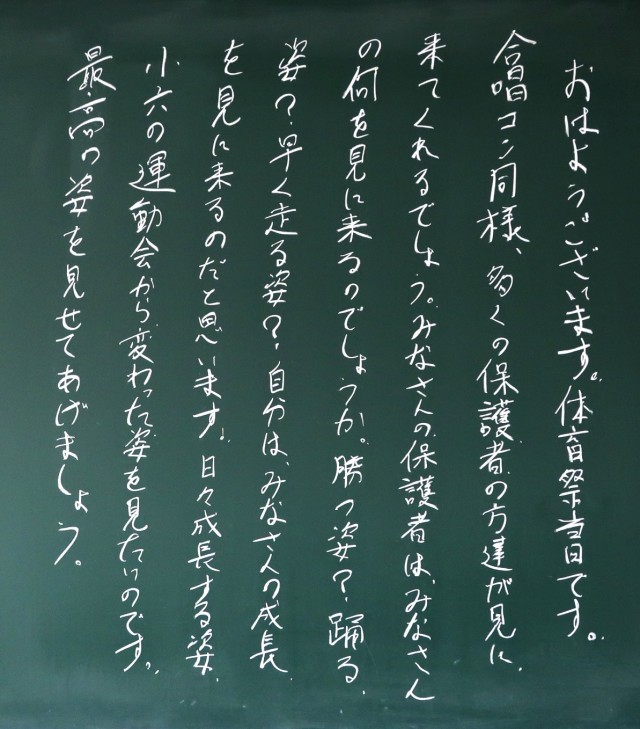 おはようございます。体育祭当日です。
合唱コン同様、多くの保護者の方達が見に
来てくれるでしょう。みなさんの保護者は、みなさん
の何を見に来るのでしょうか。勝つ姿？踊る
姿？早く走る姿？自分は、みなさんの成長
を見に来るのだと思います。日々成長する姿、
小六の運動会から変わった姿を見たいのです。
最高の姿を見せてあげましょう。